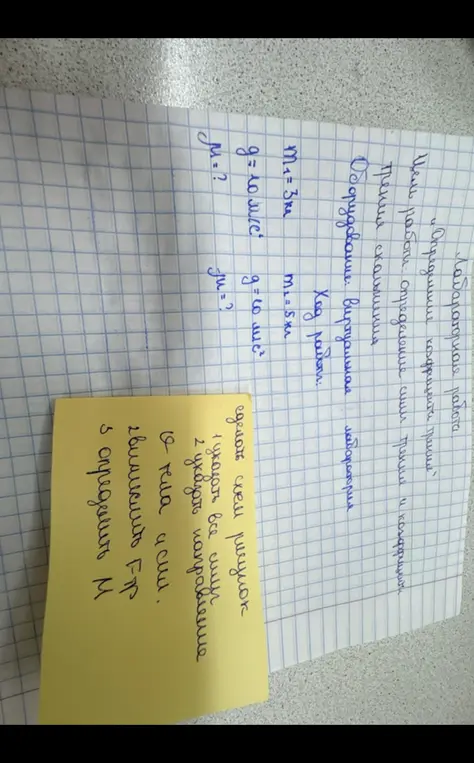 Лабораторная работа
"Определение коэффициента трения"
Цель работы: определение силы трения и коэффициента
трения скольжения
Оборудование: виртуальная лаборатория
Ход работы:
m₁ = 3 кг m₂ = 5 кг
g = 10 м/с² g = 10 м/с²
μ = ? μ = ?
сделать схем рисунок
1 указать все силы
2 указать направление
тела и сил.
2 вычислить Fтр
3 определить M